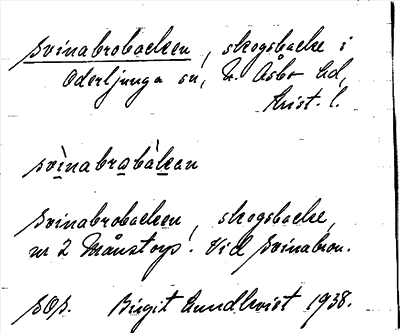 Svinabrobacken, skogsbacke i
Oderljunga sn, N. Åsbo hd,
Krist. l.
svìnabrabàkan
Svinabrobacken, skogsbacke,
nr 2 Månstorp. Vid Svinabron.
SOS. Birgit Lundkvist 1938.